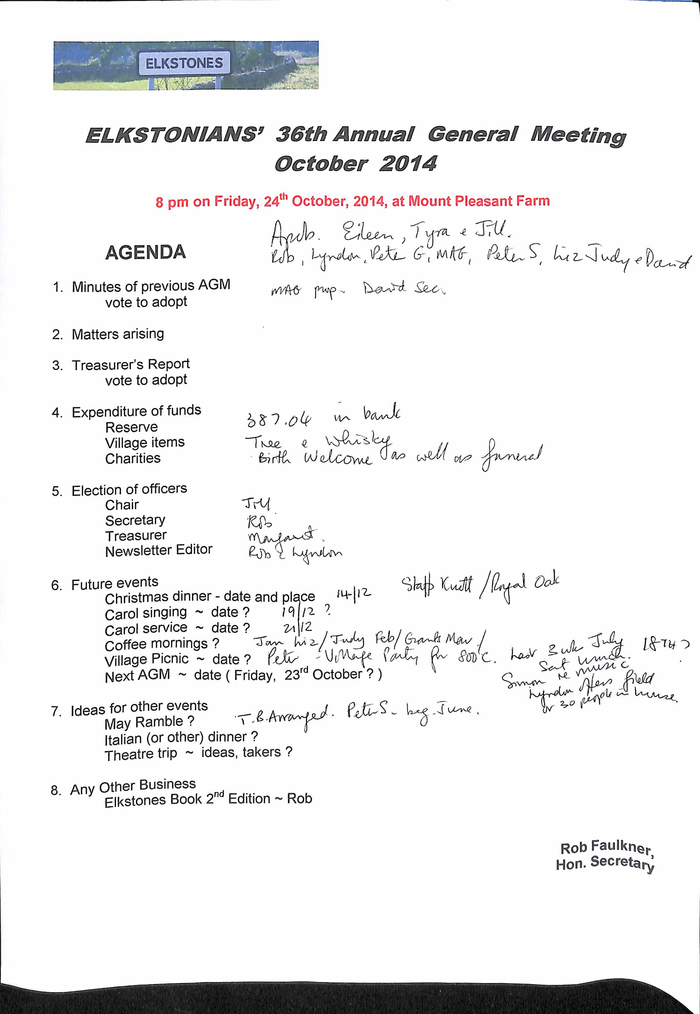 ELKSTONES
ELKSTONIANS' 36th Annual General Meeting
October 2014
8 pm on Friday, 24th October, 2014, at Mount Pleasant Farm
Eileen, Tyra & Jill.
AGENDA Rob, Lyndon, Pete G, MAG, Peter S, Liz Judy & David
1. Minutes of previous AGM MAG prop. David Sec.
vote to adopt
2. Matters arising
3. Treasurer's Report
vote to adopt
4. Expenditure of funds
Reserve 387.04 in bank
Village items Tree & Whisky
Charities Birth Welcome as well as funeral
5. Election of officers
Chair Jill
Secretary Rob
Treasurer Margaret.
Newsletter Editor Rob & Lyndon
6. Future events
Christmas dinner - date and place 14/12 Staff Knott / Royal Oak
Carol singing ~ date ? 19/12 ?
Carol service ~ date ? 21/12
Coffee mornings ? Jan Liz / Judy Feb / Grants Mar /
Village Picnic ~ date ? Peter - Village Party for 800 C. Last July
Next AGM ~ date ( Friday, 23rd October ? ) Sat lunch.
Simon re music
Lyndon offers field
or 30 people in house
7. Ideas for other events
May Ramble ? T.B. Arranged. Peter S - beg. June.
Italian (or other) dinner ?
Theatre trip ~ ideas, takers ?
8. Any Other Business
Elkstones Book 2nd Edition ~ Rob
Rob Faulkner,
Hon. Secretary